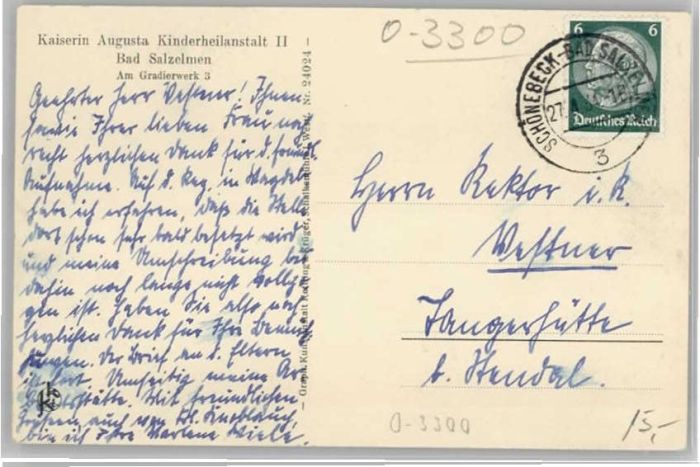 Kaiserin Augusta Kinderheilanstalt II
Bad Salzelmen
Am Gradierwerk 3
Geehrter Herr Vestner! Ihnen
sowie Ihrer lieben Frau noch
recht herzlichen Dank für d. freundl.
Aufnahme. Auf d. Reg. in Magdeb.
habe ich erfahren, daß die Stelle
dort schon sehr bald besetzt wird
und meine Umschreibung bis
dahin noch lange nicht vollzo-
gen ist. Haben Sie also noch
herzlichen Dank für Ihre Bemüh
ungen. Der Brief an d. Eltern
ist fort. Umseitig meine Ar-
beitsstätte. Mit freundlichen
Grüssen auch von Frl. Knoblauch,
bin ich Ihre Marlene Wiele.
Graph. Kunstanstalt
Nr. 24024
0-3300
6 6
Deutsches Reich
SCHÖNEBECK-BAD SALZEL
27.
3
Herrn Rektor i. R.
Vestner
Tangerhütte
b. Stendal.
0-3300
15,-